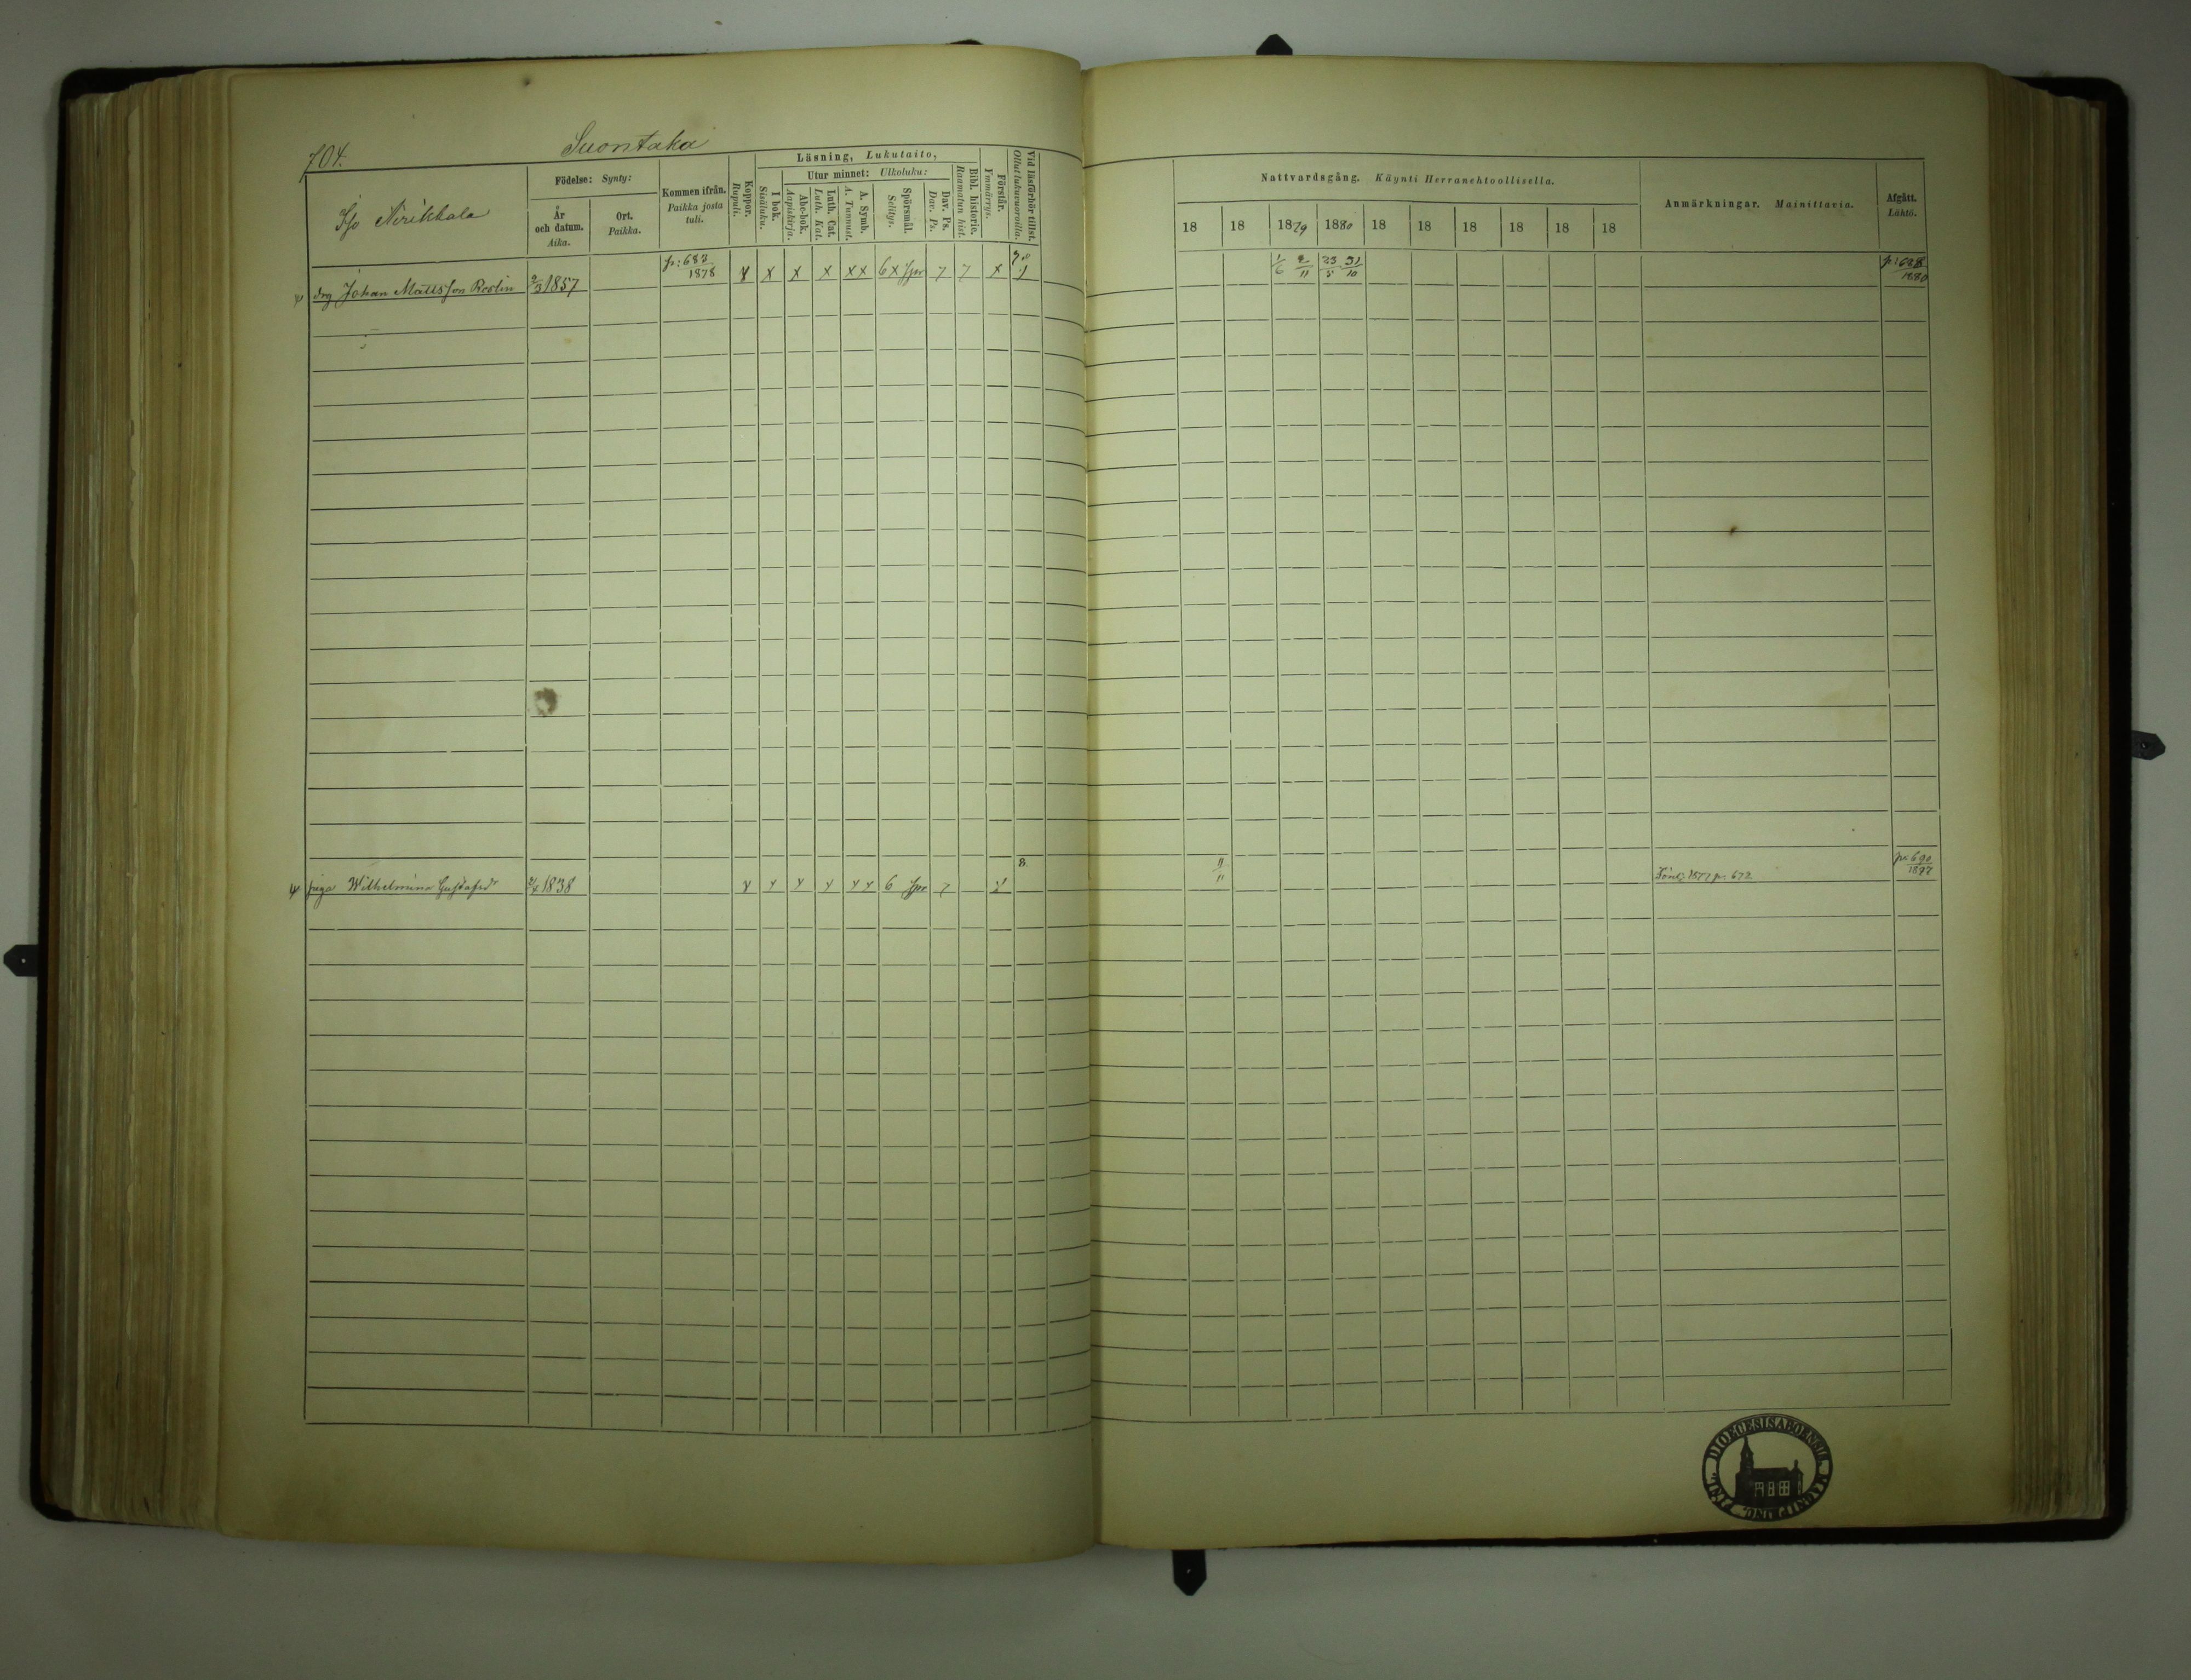 704.
Suontaka
Iso Nirikkala
Födelse: Synty:
År
och datum.
Aika.
Ort.
Paikka.
Kommen ifrån.
Paikka josta
tuli.
Koppor.
Rupuli.
Läsning, Lukutaito,
I bok.
Sisäluku.
Utur minnet: Ulkoluku:
Abc-bok.
Aapiskirja.
Luth. Cat.
Luth. Kat.
A. Symb.
A. Tunnust.
Spörsmål.
Selitys.
Dav. Ps.
Dav. Ps.
Bibl. historie.
Raamatun hist.
Förstår.
Ymmärrys.
Vid läsförhör tillst.
Ollut lukuvuoroilla.
Nattvardsgång. Käynti Herranehtoollisella.
18 18 1879 1880 18 18 18 18 18 18
Anmärkningar. Mainittavia.
Afgått.
Lähtö.
drg Johan Mattsson Roslin 2/3 1857 p: 683/1878 x x x x x x 6 x spr 7 7 x 1/6 2/11 23/5 31/10 p: 628/1880
piga Wilhelmina Gustafsdr 2/4 1838 x x x x x x 6 spr 7 11/11 1877 p. 672 p. 690/1877
DIOECESIS ABOENSIS